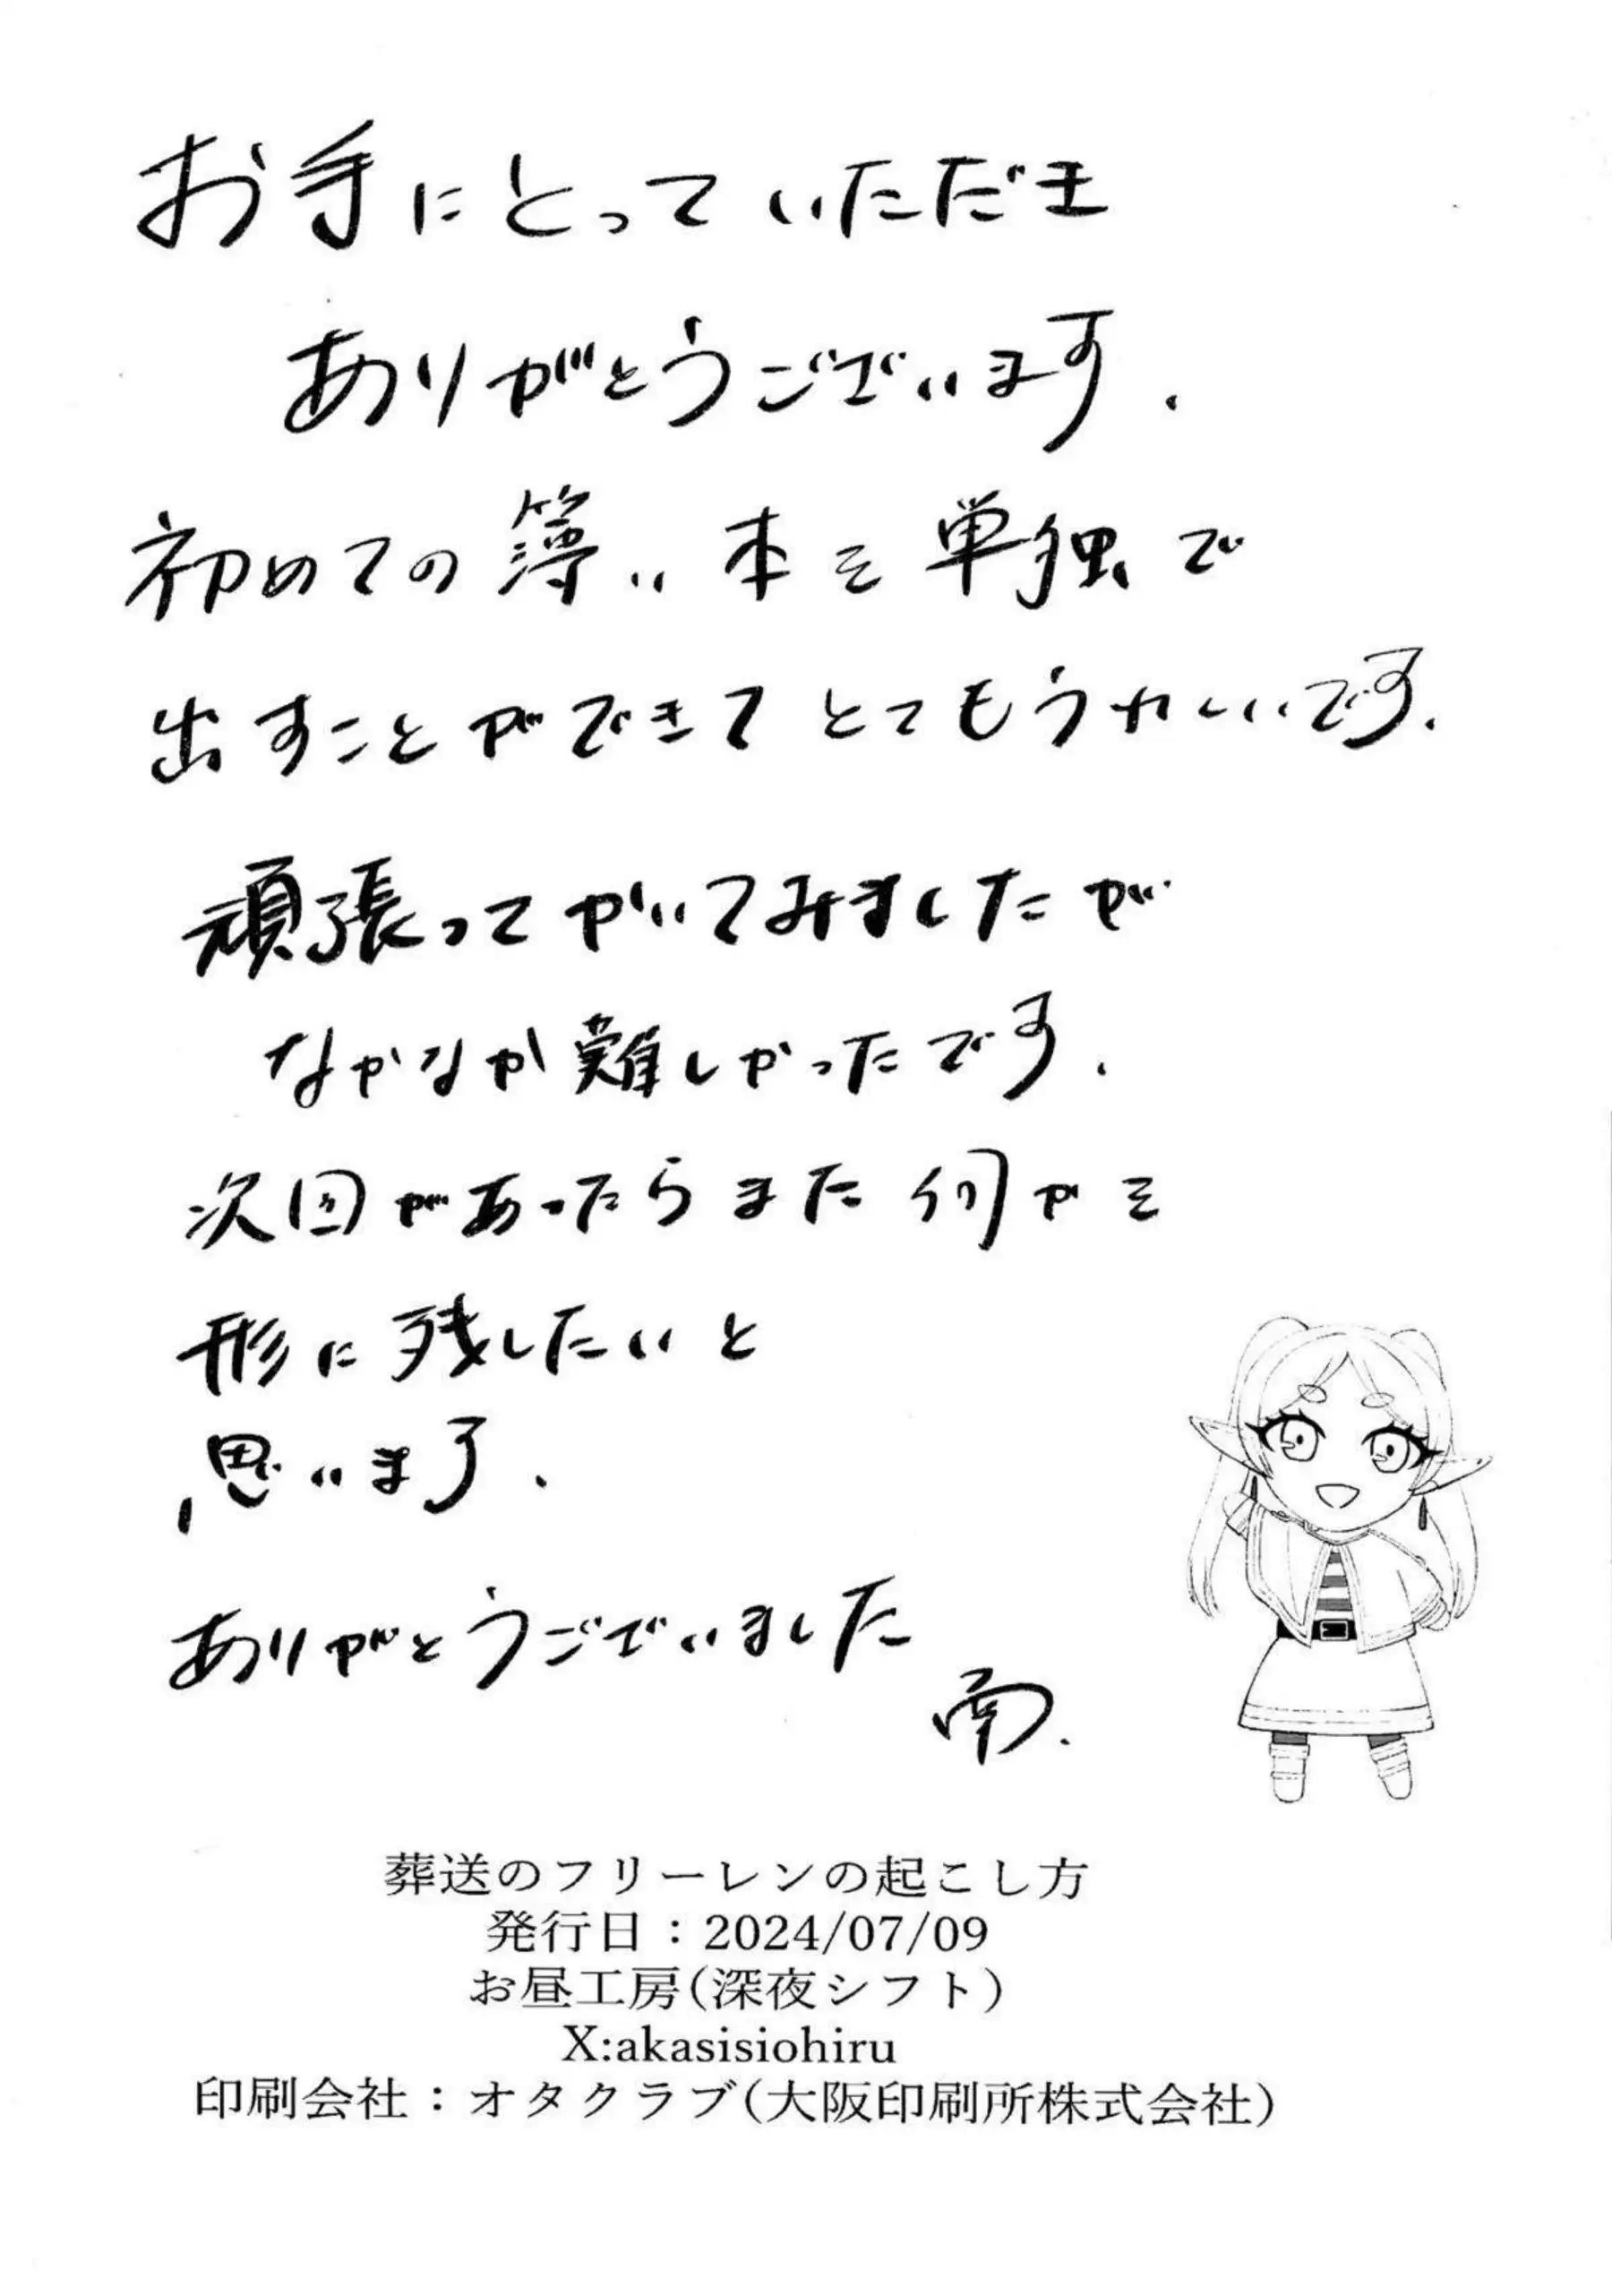 お手にとっていただき
ありがとうございます.
初めての薄い本を単独で
出すことができてとてもうれしいです.
頑張ってかいてみましたが
なかなか難しかったです.
次回があったらまた何かを
形に残したいと
思います.
ありがとうございました
南.
葬送のフリーレンの起こし方
発行日：2024/07/09
お昼工房(深夜シフト)
X:akasisiohiru
印刷会社：オタクラブ(大阪印刷所株式会社)